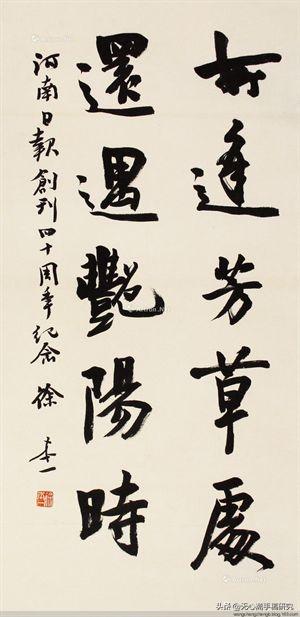 逢芳草處
還遇艷陽時
河南日報創刊四十周年纪念 徐 一
头条 @无心斋手稿研究